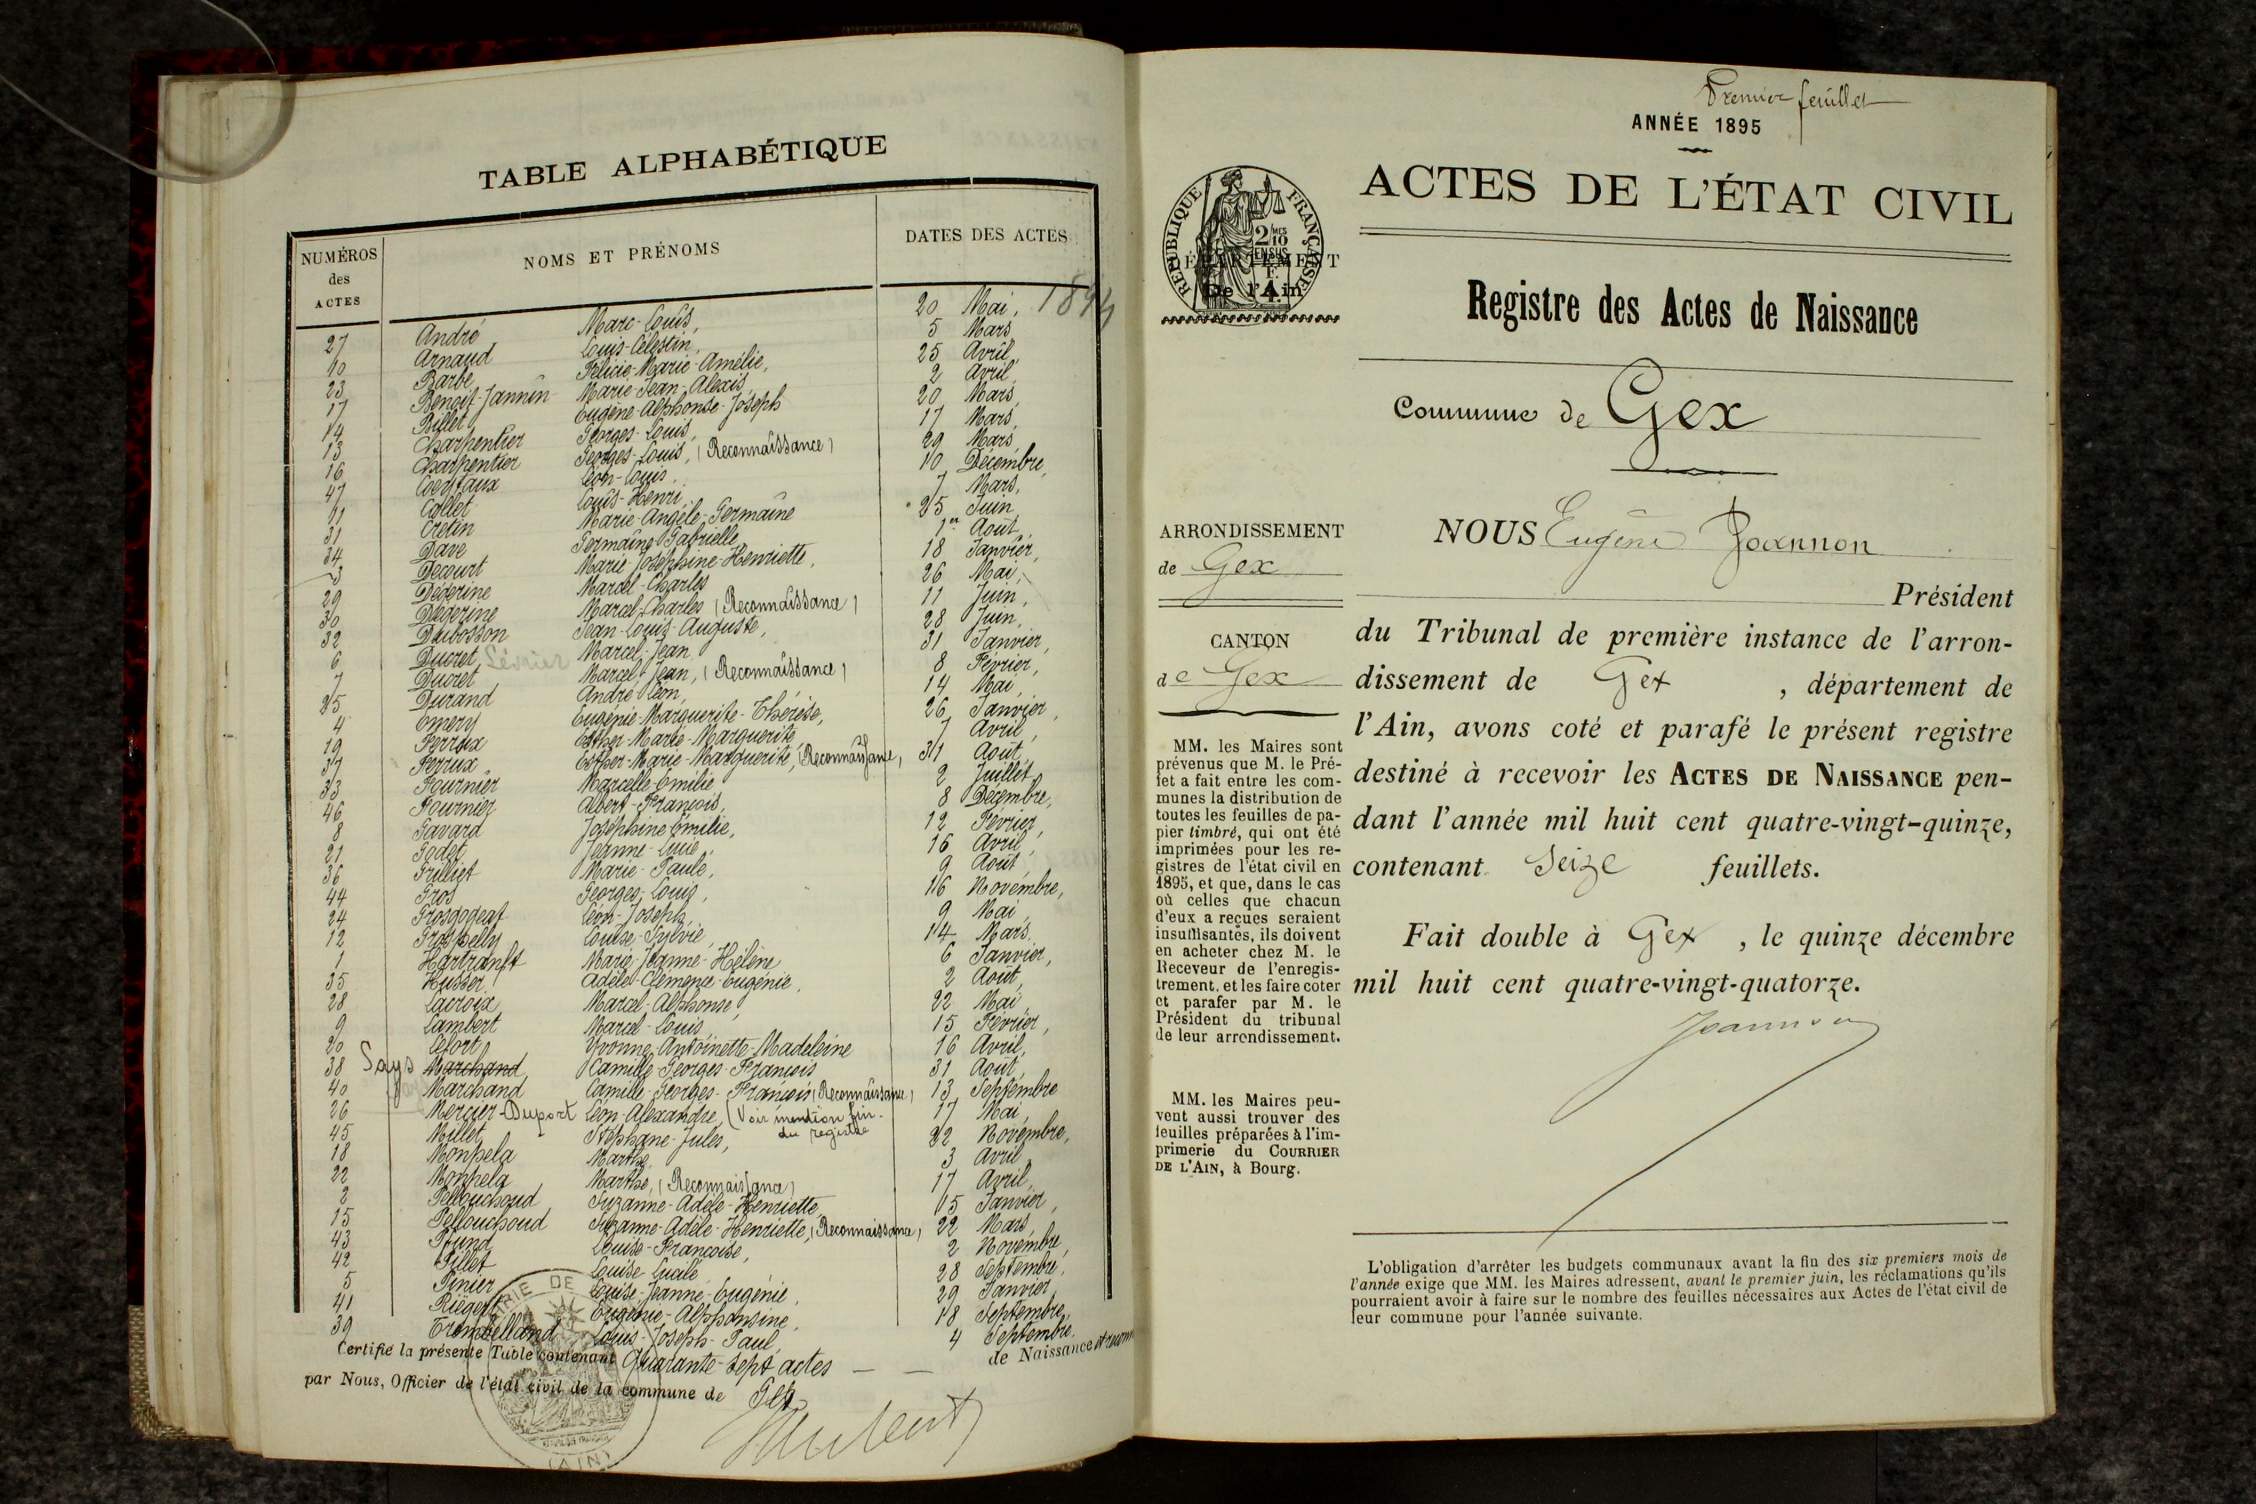 TABLE ALPHABÉTIQUE
NUMÉROS des ACTES
NOMS ET PRÉNOMS
DATES DES ACTES
27 André Marc-Louis, 20 Mai, 1894
10 Arnaud Louis-Célestin, 5 Mars
23 Barbe Félicie-Marie-Amélie, 25 Avril,
17 Benoit-Jannin Marie-Jean-Alexis 2 Avril,
14 Billet Eugène-Alphonse-Joseph 20 Mars,
13 Charpentier Georges-Louis, 17 Mars,
16 Charpentier Georges-Louis, (Reconnaissance) 29 Mars
47 Coeytaux Léon-Louis, 10 Décembre,
11 Collet Louis-Henri 7 Mars,
31 Cretin Marie-Angèle-Germaine 25 Juin
34 Dave Germaine Gabrielle, 1er Août,
3 Decourt Marie Joséphine-Henriette, 18 Janvier,
29 Déderine Marcel-Charles 26 Mai,
30 Déderine Marcel-Charles (Reconnaissance) 11 Juin,
32 Dubosson Jean-Louis-Auguste, 28 Juin,
6 Ducret Février Marcel-Jean 31 Janvier,
7 Ducret Marcel-Jean, (Reconnaissance) 8 Février,
25 Durand André Léon, 14 Mai,
4 Emery Eugénie-Marguerite-Thérèse, 26 Janvier,
19 Ferrux Esther-Marie-Marguerite, 7 Avril,
37 Ferrux Esther-Marie-Marguerite, (Reconnaissance, 31 Août,
33 Fournier Marcelle-Emilie 2 Juillet,
46 Fournier Albert-François, 8 Décembre,
8 Gavard Joséphine Emilie, 12 Février,
21 Godet Jeanne-Lucie, 16 Avril,
36 Grilliet Marie-Paule, 9 Août,
44 Gros Georges-Louis, 16 Novembre,
24 Grosgogeat Léon-Joseph, 9 Mai,
12 Grospelly Louise-Sylvie, 14 Mars,
1 Hartranft Marie-Jeanne-Hélène 6 Janvier,
35 Husser Adèle-Clémence-Eugénie, 2 Août,
28 Lacroix Marcel-Alphonse, 22 Mai
9 Lambert Marcel-Louis, 15 Février,
20 Lefort Yvonne Antoinette-Madeleine 16 Avril,
38 Says Marchand Camille Georges-François 31 Août,
40 Marchand Camille-Georges-François (Reconnaissance) 13 Septembre
26 Mercier-Duport Léon-Alexandre, (Voir mention fin du registre 17 Mai,
45 Millet Stéphane-Jules, 22 Novembre,
18 Monpela Marthe, 3 Avril,
22 Monpela Marthe, (Reconnaissance) 17 Avril,
2 Pellouchoud Suzanne-Adèle-Henriette, 15 Janvier,
15 Pellouchoud Suzanne-Adèle-Henriette, (Reconnaissance) 22 Mars
43 Pfund Louise-Françoise, 2 Novembre,
42 Pillet Louise Lucile 28 Septembre,
5 Pinier Louise-Jeanne-Eugénie, 29 Janvier
41 Riegert Eugénie-Alphonsine, 18 Septembre,
39 Trembelland Louis-Joseph-Paul, 4 Septembre,
Certifié la présente Table contenant Quarante-sept actes — — de Naissance et
par Nous, Officier de l'état civil de la commune de Gex
MAIRIE DE
(AIN)
Premier feuillet
ANNÉE 1895
ACTES DE L'ÉTAT CIVIL
RÉPUBLIQUE FRANÇAISE
2/10 MES
EN SUS
DÉPARTEMENT
De l'Ain
Registre des Actes de Naissance
Commune de Gex
ARRONDISSEMENT
de Gex
CANTON
de Gex
MM. les Maires sont
prévenus que M. le Pré-
fet a fait entre les com-
munes la distribution de
toutes les feuilles de pa-
pier timbré, qui ont été
imprimées pour les re-
gistres de l'état civil en
1895, et que, dans le cas
où celles que chacun
d'eux a reçues seraient
insuffisantes, ils doivent
en acheter chez M. le
Receveur de l'enregis-
trement, et les faire coter
et parafer par M. le
Président du tribunal
de leur arrondissement.
MM. les Maires peu-
vent aussi trouver des
feuilles préparées à l'im-
primerie du COURRIER
DE L'AIN, à Bourg.
NOUS Eugène Joannon
Président
du Tribunal de première instance de l'arron-
dissement de Gex, département de
l'Ain, avons coté et parafé le présent registre
destiné à recevoir les ACTES DE NAISSANCE pen-
dant l'année mil huit cent quatre-vingt-quinze,
contenant Seize feuillets.
Fait double à Gex, le quinze décembre
mil huit cent quatre-vingt-quatorze.
Joannon
L'obligation d'arrêter les budgets communaux avant la fin des six premiers mois de
l'année exige que MM. les Maires adressent, avant le premier juin, les réclamations qu'ils
pourraient avoir à faire sur le nombre des feuilles nécessaires aux Actes de l'état civil de
leur commune pour l'année suivante.